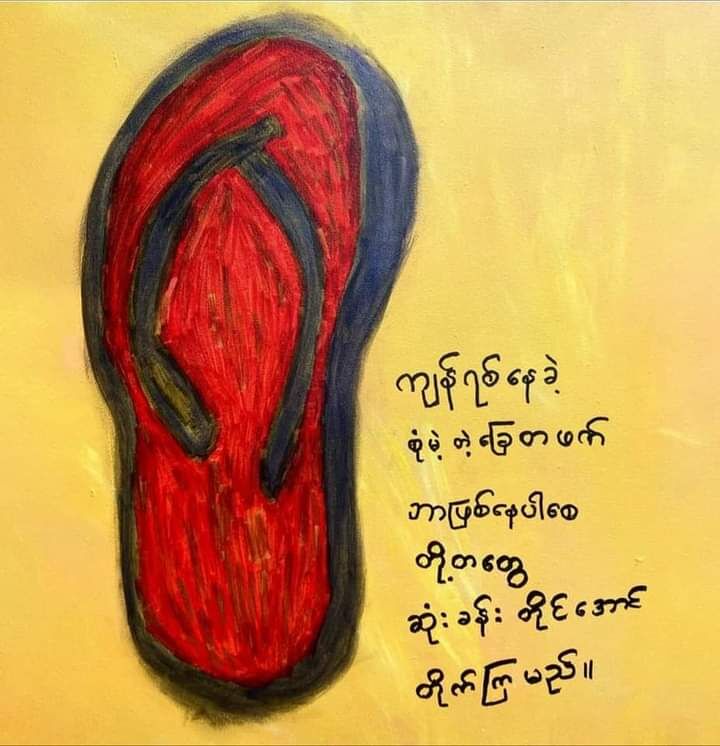 ကျန်ရစ်နေခဲ့
စုံမဲ့တဲ့ခြေတဖက်
ဘာဖြစ်နေပါစေ
တို့တတွေ
ဆုံးခန်းတိုင်အောင်
တိုက်ကြမည်။